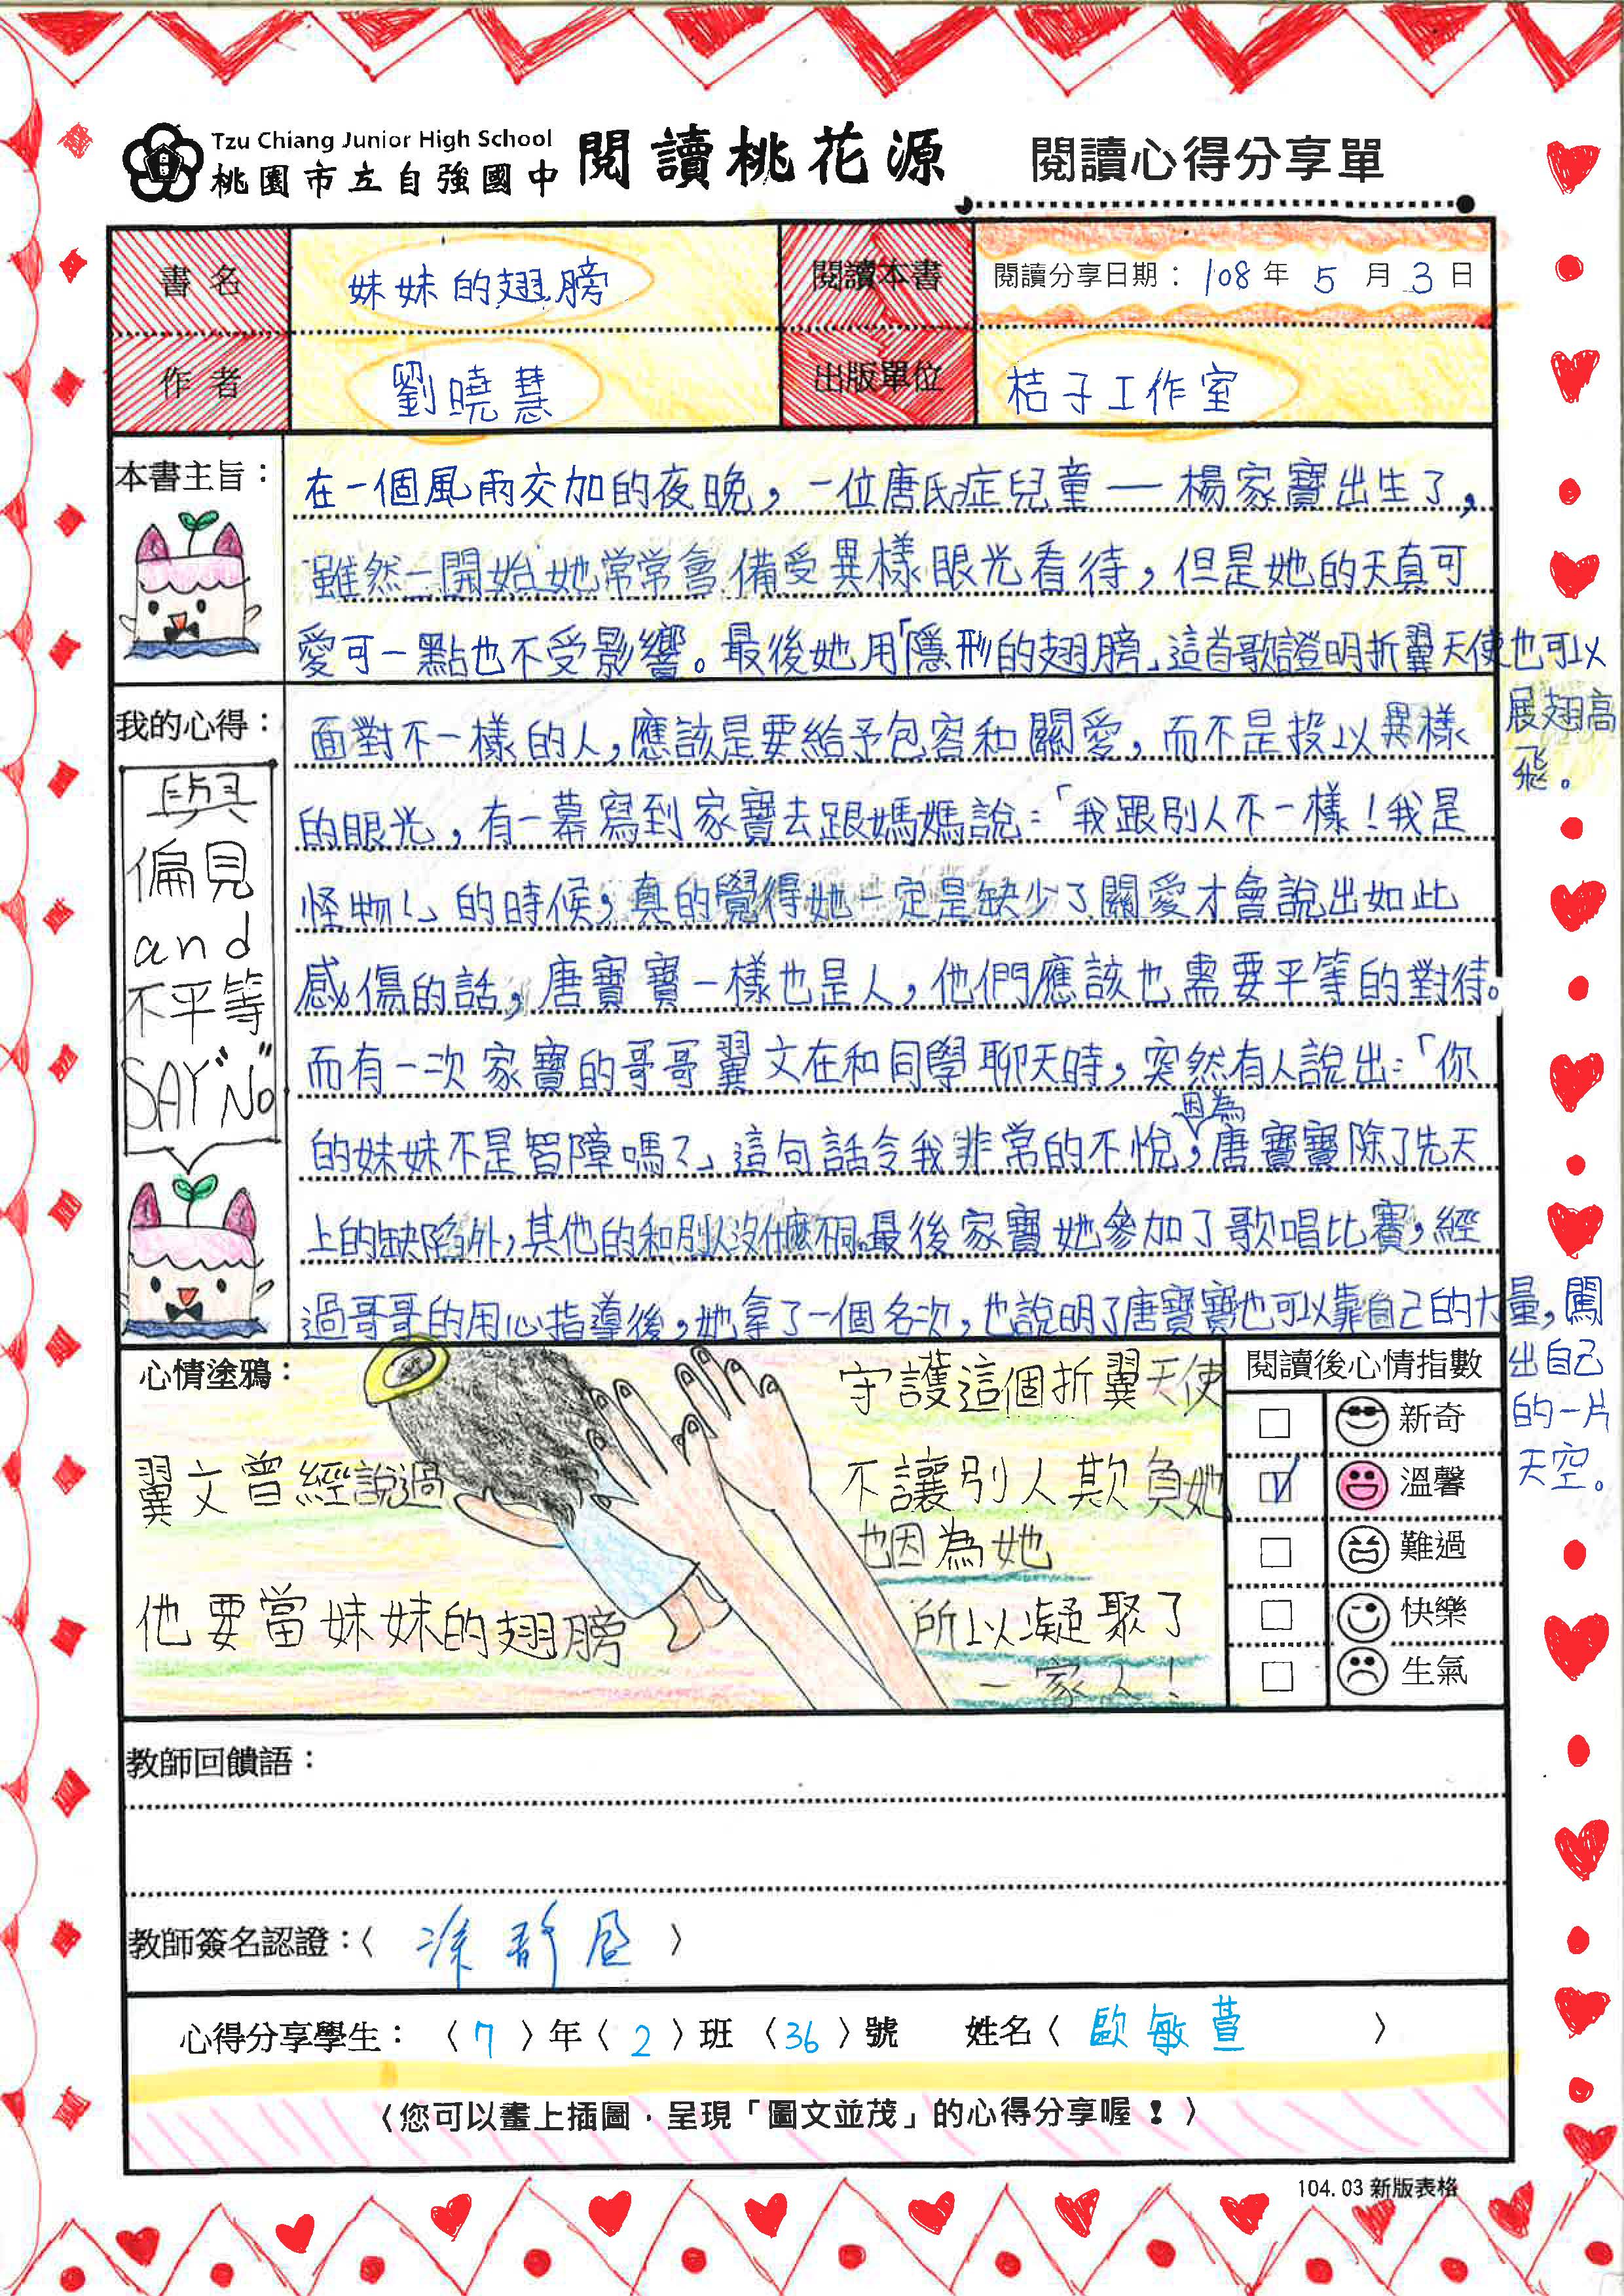 Tzu Chiang Junior High School
桃園市立自強國中 閱讀桃花源 閱讀心得分享單
書名 妹妹的翅膀 閱讀本書 閱讀分享日期：108年5月3日
作者 劉曉慧 出版單位 桔子工作室
本書主旨：
在一個風雨交加的夜晚，一位唐氏症兒童—楊家寶出生了，
雖然一開始她常常會備受異樣眼光看待，但是她的天真可
愛可一點也不受影響。最後她用「隱形的翅膀」這首歌證明折翼天使也可以
展翅高
飛。
我的心得：
與
偏見
and
不平等
SAY"No"
面對不一樣的人，應該是要給予包容和關愛，而不是投以異樣
的眼光，有一幕寫到家寶去跟媽媽說：「我跟別人不一樣！我是
怪物！」的時候，真的覺得她一定是缺少了關愛才會說出如此
感傷的話，唐寶寶一樣也是人，他們應該也需要平等的對待。
而有一次家寶的哥哥翼文在和同學聊天時，突然有人說出：「你
的妹妹不是智障嗎？」這句話令我非常的不悅，因為唐寶寶除了先天
上的缺陷外，其他的和別人沒什麼不同。最後家寶她參加了歌唱比賽，經
過哥哥的用心指導後，她拿了一個名次，也說明了唐寶寶也可以靠自己的力量，闖
出自己
的一片
天空。
心情塗鴉：
翼文曾經說過
他要當妹妹的翅膀
守護這個折翼天使
不讓別人欺負她
也因為她
所以凝聚了
一家人！
閱讀後心情指數
新奇
溫馨
難過
快樂
生氣
教師回饋語：
教師簽名認證：〈 〉
心得分享學生：〈7〉年〈2〉班〈36〉號 姓名〈歐敏萱〉
〈您可以畫上插圖，呈現「圖文並茂」的心得分享喔！〉
104.03 新版表格